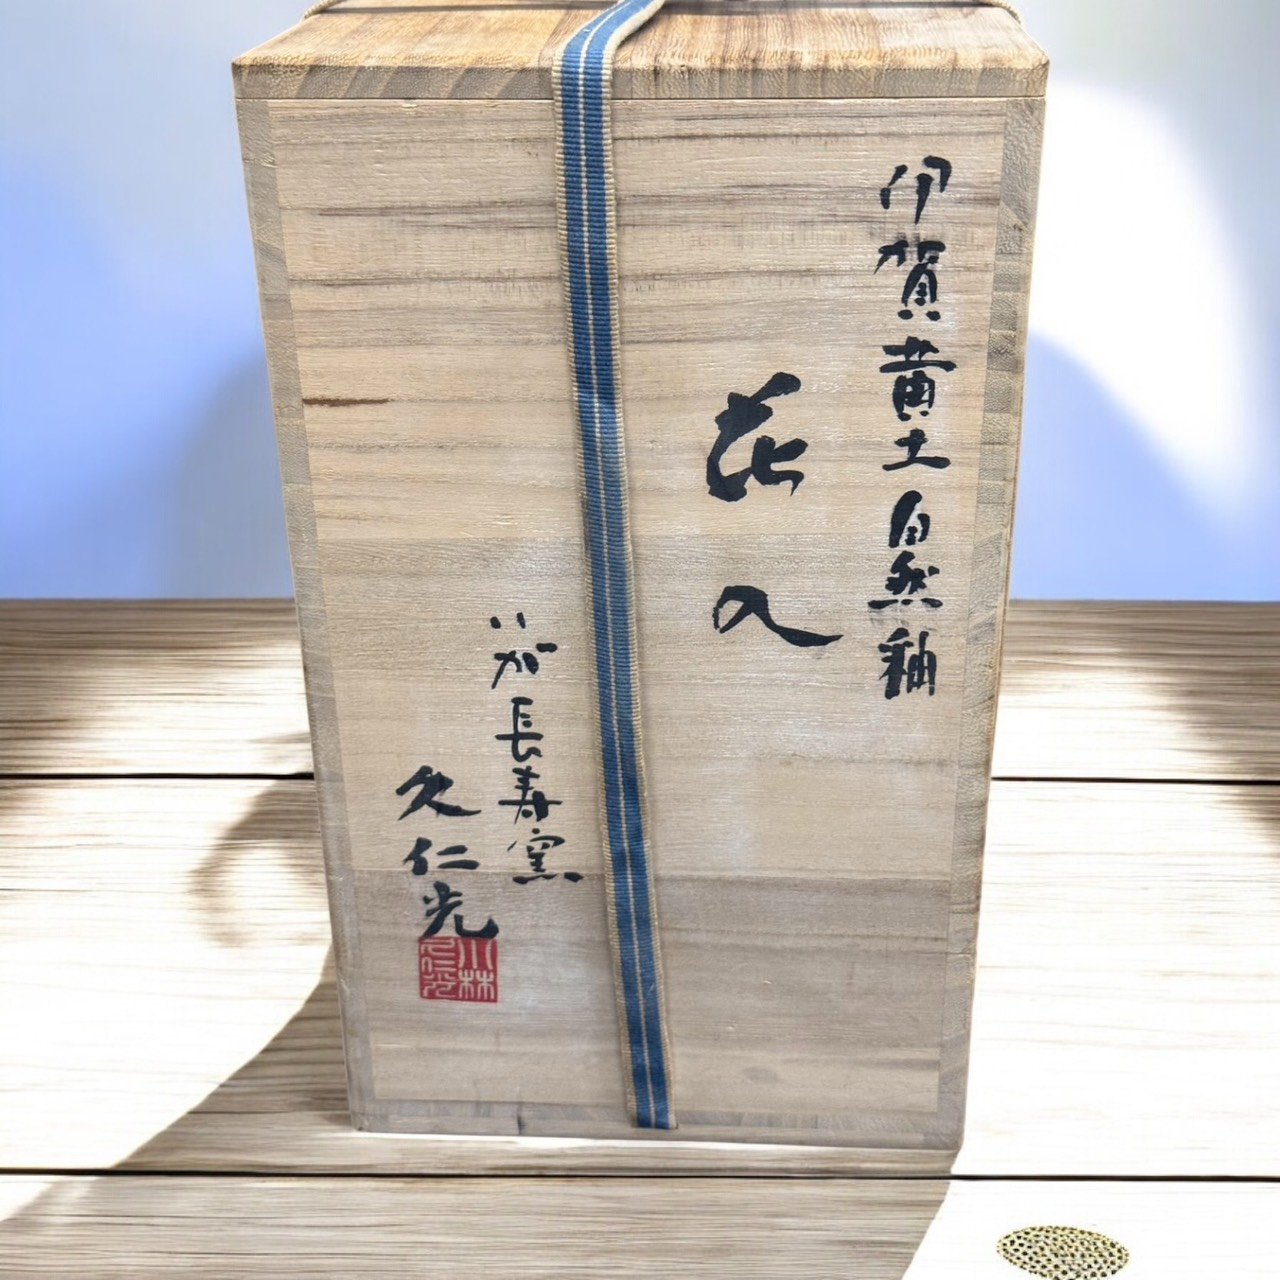 伊賀黄土自然釉
花入
いが長寿窯
久仁光
小林
久仁光